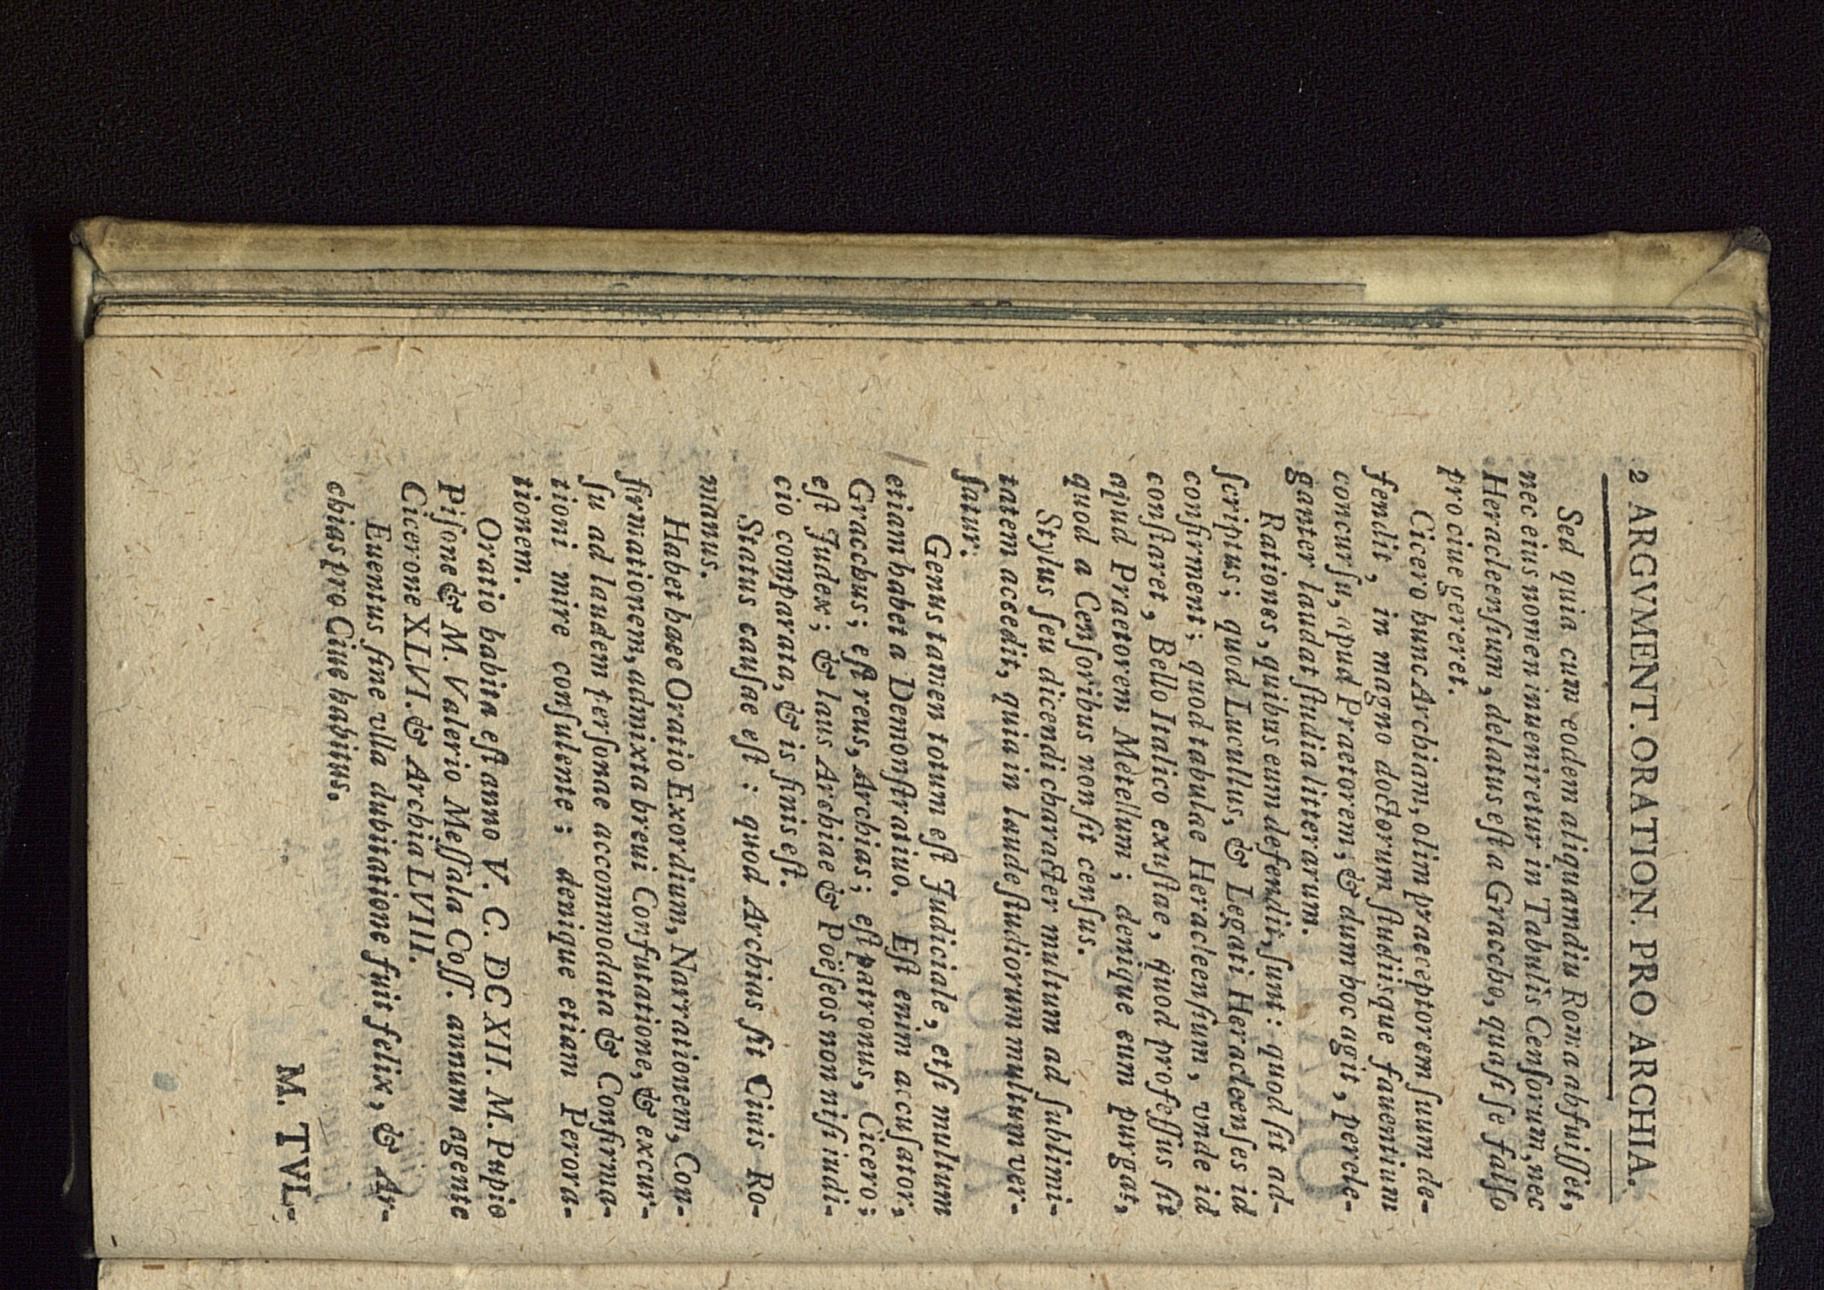 2 ARGVMENT. ORATION. PRO ARCHIA.
Sed quia cum eodem aliquamdiu Roma abfuiſſet,
nec eius nomen inueniretur in Tabulis Cenſorum, nec
Heracleenſium, delatus eſt a Graccho, quaſi ſe falſo
pro ciue gereret.
Cicero hunc Archiam, olim praeceptorem ſuum de-
fendit, in magno doctorum ſtudiisque fauentium
concurſu, apud Praetorem; & dum hoc agit, perele-
ganter laudat ſtudia litterarum.
Rationes, quibus eum defendit, ſunt: quod ſit ad-
ſcriptus; quod Lucullus, & Legati Heracleenſes id
confirment; quod tabulae Heracleenſium, vnde id
conſtaret, Bello Italico exuſtae, quod profeſſus ſit
apud Praetorem Metellum; denique eum purgat,
quod a Cenſoribus non ſit cenſus.
Stylus ſeu dicendi character multum ad ſublimi-
tatem accedit, quia in laude ſtudiorum multum ver-
ſatur.
Genus tamen totum eſt Judiciale, etſi multum
etiam habet a Demonſtratiuo. Eſt enim accuſator,
Gracchus; eſt reus, Archias; eſt patronus, Cicero;
eſt Judex; & laus Archiae & Poëſeos non niſi iudi-
cio comparata, & is finis eſt.
Status cauſae eſt: quod Archias ſit Ciuis Ro-
manus.
Habet haec Oratio Exordium, Narrationem, Con-
firmationem, admixta breui Confutatione, & excur-
ſu ad laudem perſonae accommodata & Confirma-
tioni mire conſulente; denique etiam Perora-
tionem.
Oratio habita eſt anno V. C. DCXII. M. Pupio
Piſone & M. Valerio Meſſala Coſſ. annum agente
Cicerone XLVI. & Archia LVIII.
Euentus ſine vlla dubitatione fuit felix, & Ar-
chias pro Ciue habitus.
M. TVL-